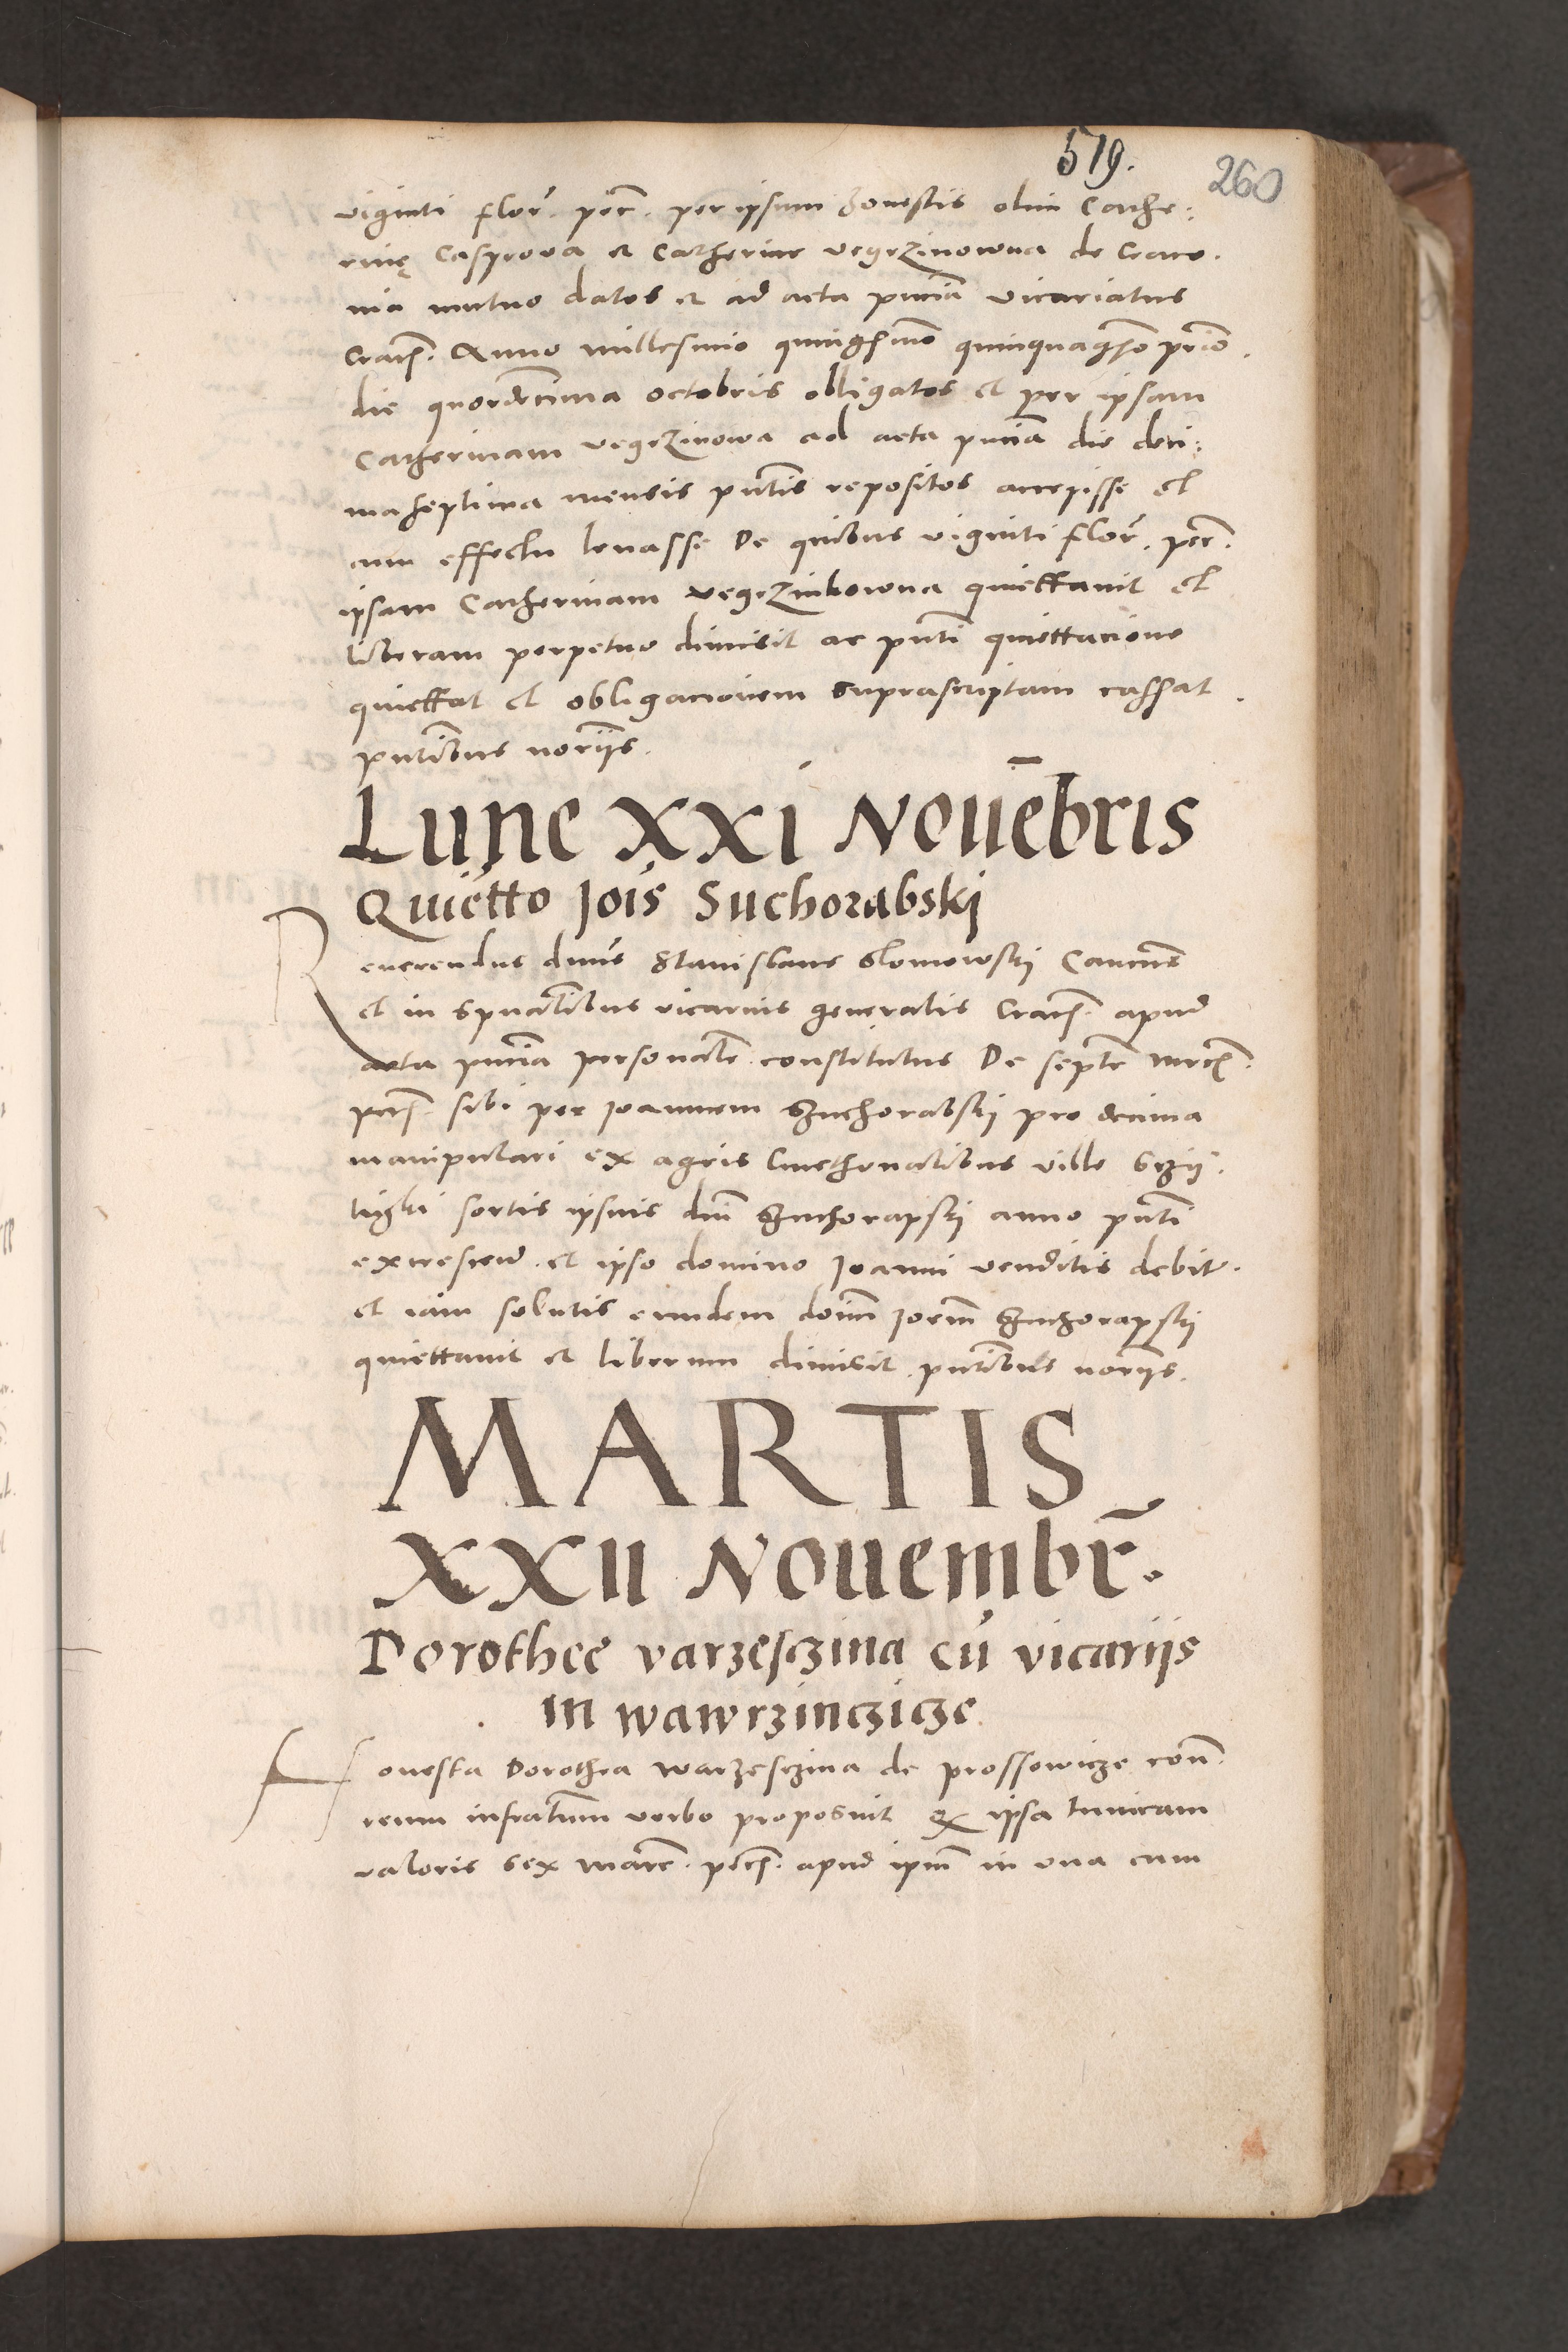 519.
260
viginti flor̃. pec̃. per ipsum honestis olim Cathe:
rinę Casprova et Catherine vegrzinowna de Craco.
via mutuo datos et ad acta pn̄cia vicariatus
Cracɧ. Anno millesimo quingēmo quinquagēso primo.
die quordecima octobris obligatos et per ipsam
Catherinam vegrzinowa ad acta pn̄cia die deci:
ma septima mensis pn̄tis repositos accepisse et
cum effectu levasse De quibus viginti flor̃. pec̃.
ipsam Catherinam vegrzinkowna quiettavit et
liberam perpetuo dimisit ac pn̄ti quiettacione
quiettat et obligacionem suprascriptam cassat.
pn̄tibus noriis.
Lune XXI Novēbris
Quietto Jois Suchorabski
Reverendus dnūs Stanislaus Slomowskij Cancus
et in spūalibus vicarius generalis Cracɧ. apud
acta pn̄cia personalr̄ constitutus De septē mrcɧ.
pecɧ. sibi per Joannem Suchorabskij pro decima
manipulari ex agris Cmethonalibus ville
sortis ipsius dnī Suchorapskij anno pn̄ti
excrescen̄. et ipso domino Joanni venditis debit.
et iam solutis eundem doim̄ Joem̄ Suchorapskij
quiettavit et liberum dimisit. pn̄tibus noriis.
MARTIS
XXII Novembr̄.
Dorothee varzesczina cū vicariis
in wawrzinczicze
Honesta Dorothea warzesczina de prossowicze con̄.
reum infratum̄ verbo proposuit Qz ipsa tunicam
valoris sex marc̄. pecɧ. apud ipm̄ in una cum